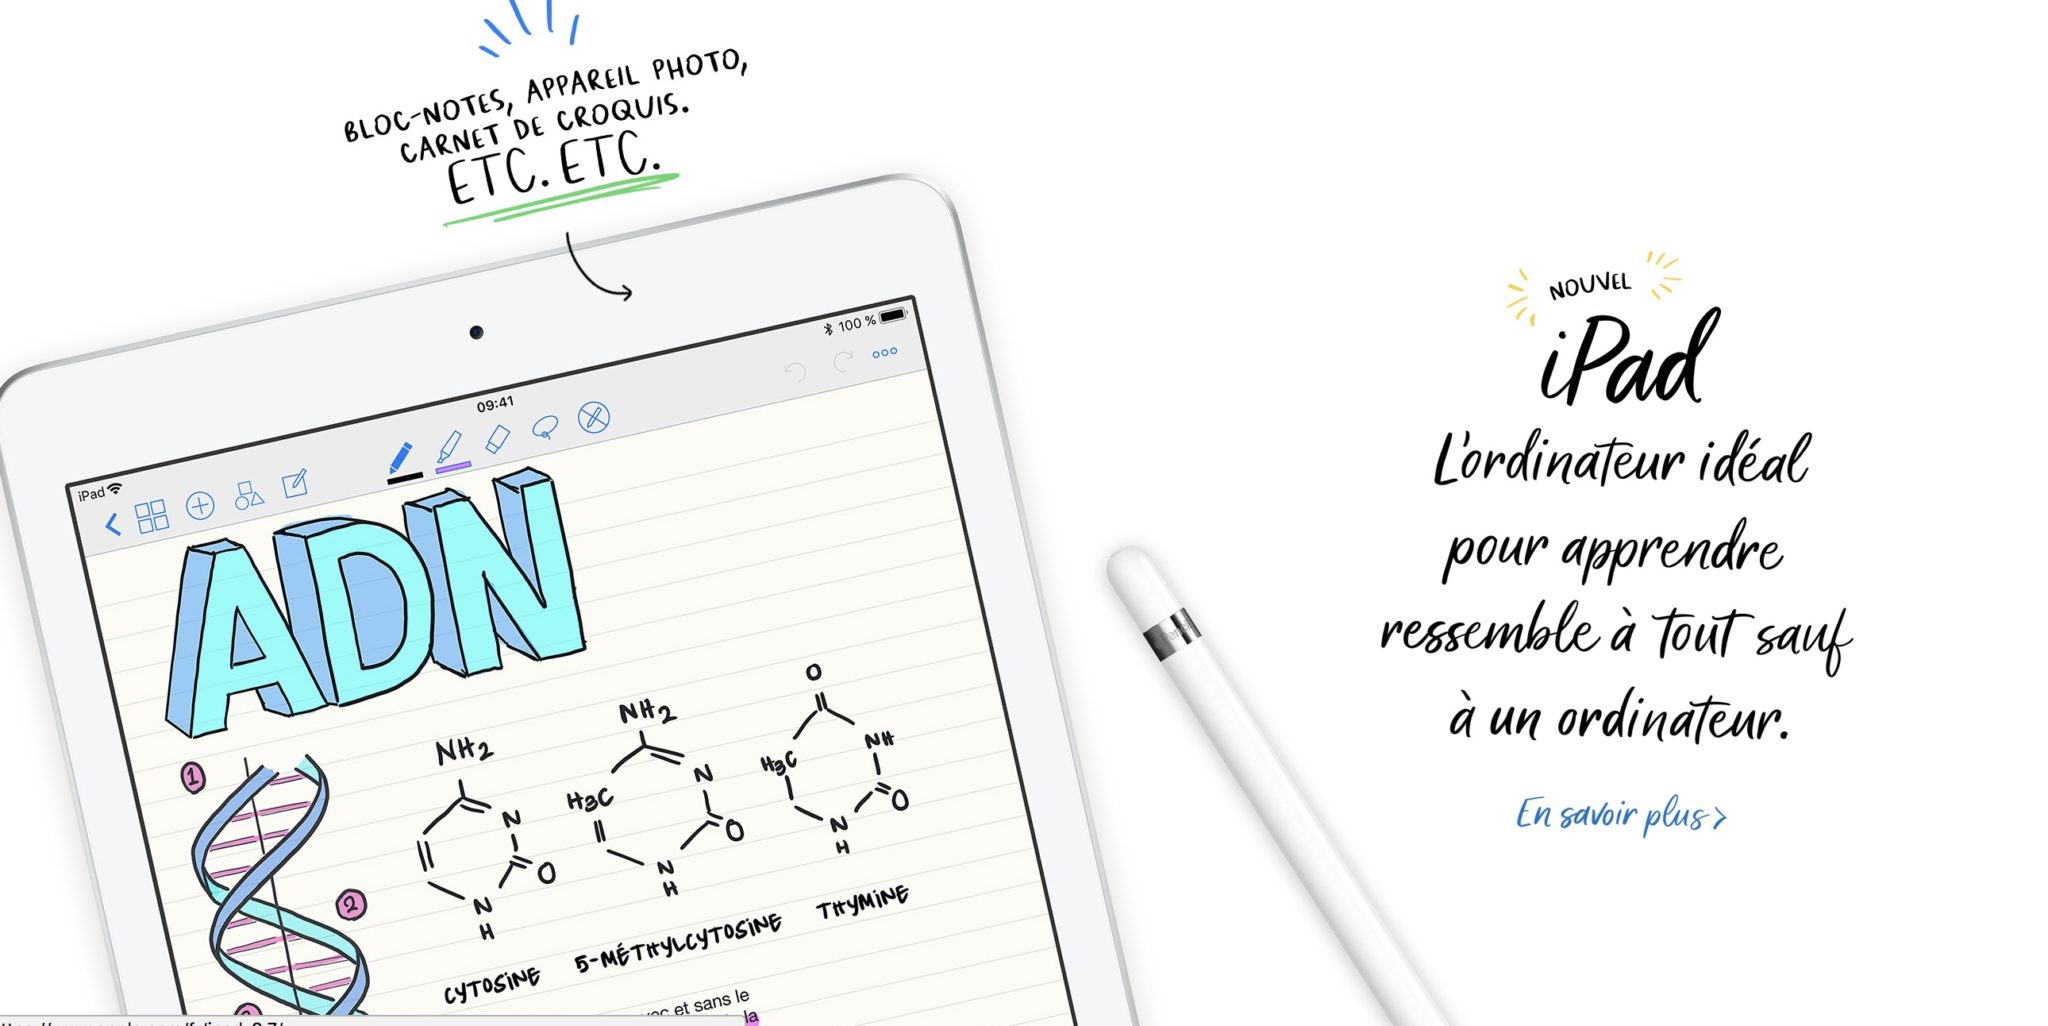 BLOC-NOTES, APPAREIL PHOTO,
CARNET DE CROQUIS.
ETC. ETC.
NOUVEL
iPad
L'ordinateur idéal
pour apprendre
ressemble à tout sauf
à un ordinateur.
En savoir plus >
iPad
09:41
100 %
ADN
1
2
NH2
N
O
N
H
CYTOSINE
NH2
H3C
N
O
N
H
5-MÉTHYLCYTOSINE
O
H3C
NH
O
N
H
THYMINE
et sans le
la